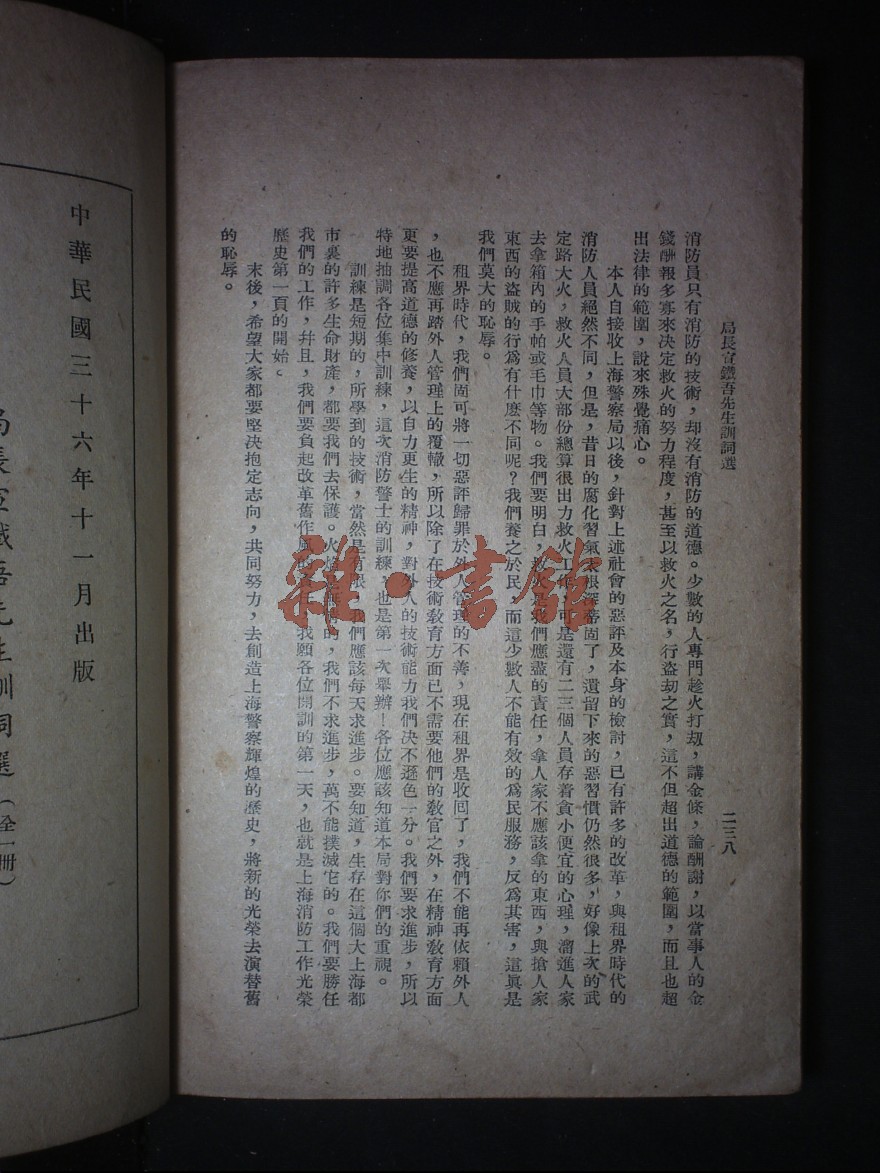 局長宣鐵吾先生訓詞選
二三八
消防員只有消防的技術，却沒有消防的道德。少數的人專門趁火打刼，講金條，論酬謝，以當事人的金
錢酬報多寡來決定救火的努力程度，甚至以救火之名，行盜刼之實，這不但超出道德的範圍，而且也超
出法律的範圍，說來殊覺痛心。
本人自接收上海警察局以後，針對上述社會的惡評及本身的檢討，已有許多的改革，與租界時代的
消防人員絕然不同，但是，昔日的腐化習氣太根深蒂固了，遺留下來的惡習慣仍然很多，好像上次的武
定路大火，救火人員大部份總算很出力救火工作，可是還有二三個人員存着貪小便宜的心理，溜進人家
去拿箱內的手帕或毛巾等物。我們要明白，救火是我們應盡的責任，拿人家不應該拿的東西，與搶人家
東西的盜賊的行爲有什麽不同呢？我們養之於民，而這少數人不能有效的爲民服務，反爲其害，這眞是
我們莫大的恥辱。
租界時代，我們固可將一切惡評歸罪於外人管理的不善，現在租界是收回了，我們不能再依賴外人
，也不應再踏外人管理上的覆轍，所以除了在技術敎育方面已不需要他們的敎官之外，在精神敎育方面
更要提高道德的修養，以自力更生的精神，對外人的技術能力我們決不遜色一分。我們要求進步，所以
特地抽調各位集中訓練，這次消防警士的訓練，也是第一次舉辦！各位應該知道本局對你們的重視。
訓練是短期的，所學到的技術，當然是有限，我們應該每天求進步。要知道，生存在這個大上海都
市裏的許多生命財產，都要我們去保護。火焰是無情的，我們不求進步，萬不能撲滅它的。我們要勝任
我們的工作，幷且，我們要負起改革舊作風的責任，我願各位開訓的第一天，也就是上海消防工作光榮
歷史第一頁的開始。
末後，希望大家都要堅決抱定志向，共同努力，去創造上海警察輝煌的歷史，將新的光榮去演替舊
的恥辱。
中華民國三十六年十一月出版
局長宣鐵吾先生訓詞選（全一冊）
雜·書館